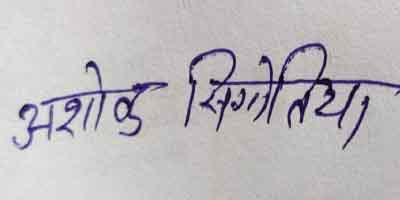 अशोक सिगोतिया